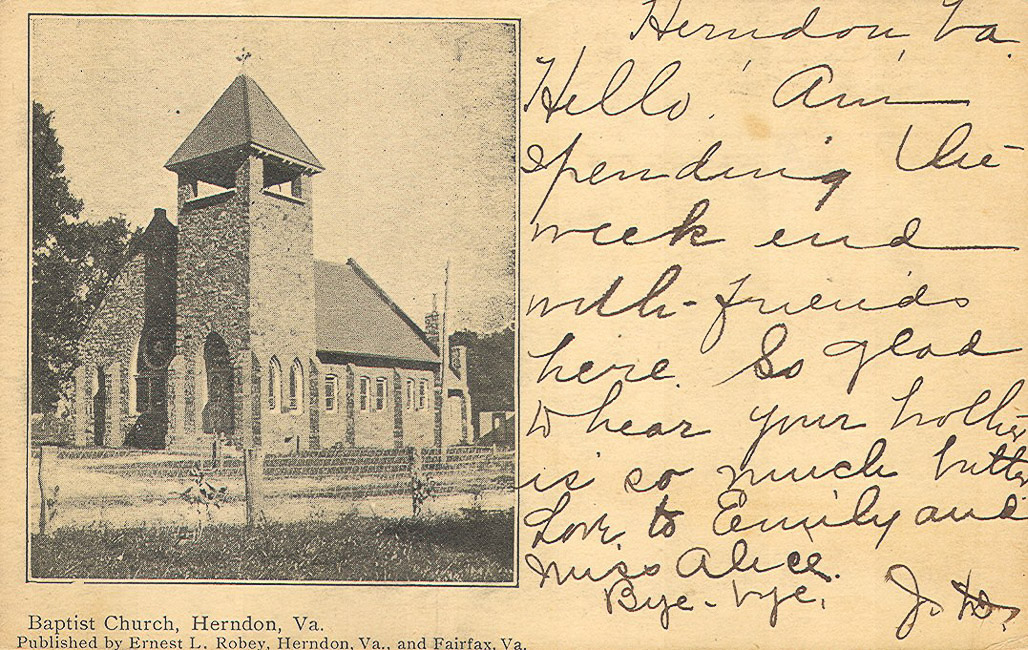 Herndon, Va.
Hello! Am
spending the
week end
with friends
here. So glad
to hear your
is so much better
Love to Emily and
Miss Alice.
Bye-bye,
J. W.
Baptist Church, Herndon, Va.
Published by Ernest L. Robey, Herndon, Va., and Fairfax, Va.